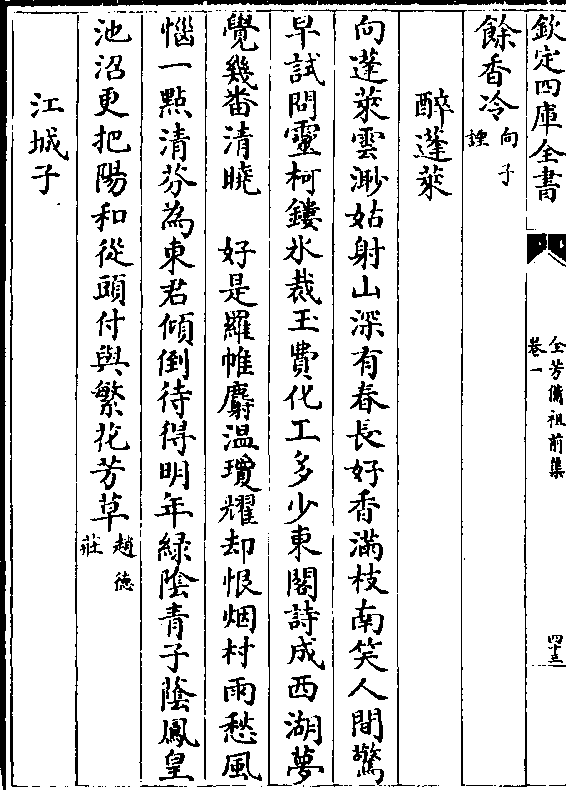 欽定四庫全書
全芳備祖前集
卷一
四十三
餘香冷向子諲
醉蓬萊
向蓬萊雲渺姑射山深有春長好香滿枝南笑人間驚
早試問靈柯鏤氷裁玉費化工多少東閣詩成西湖夢
覺幾畨清曉　好是羅帷麝温瓊耀却恨烟村雨愁風
惱一點清芬為東君傾倒待得明年綠陰青子蔭鳳皇
池沼更把陽和從頭付與繁花芳草趙德莊
江城子